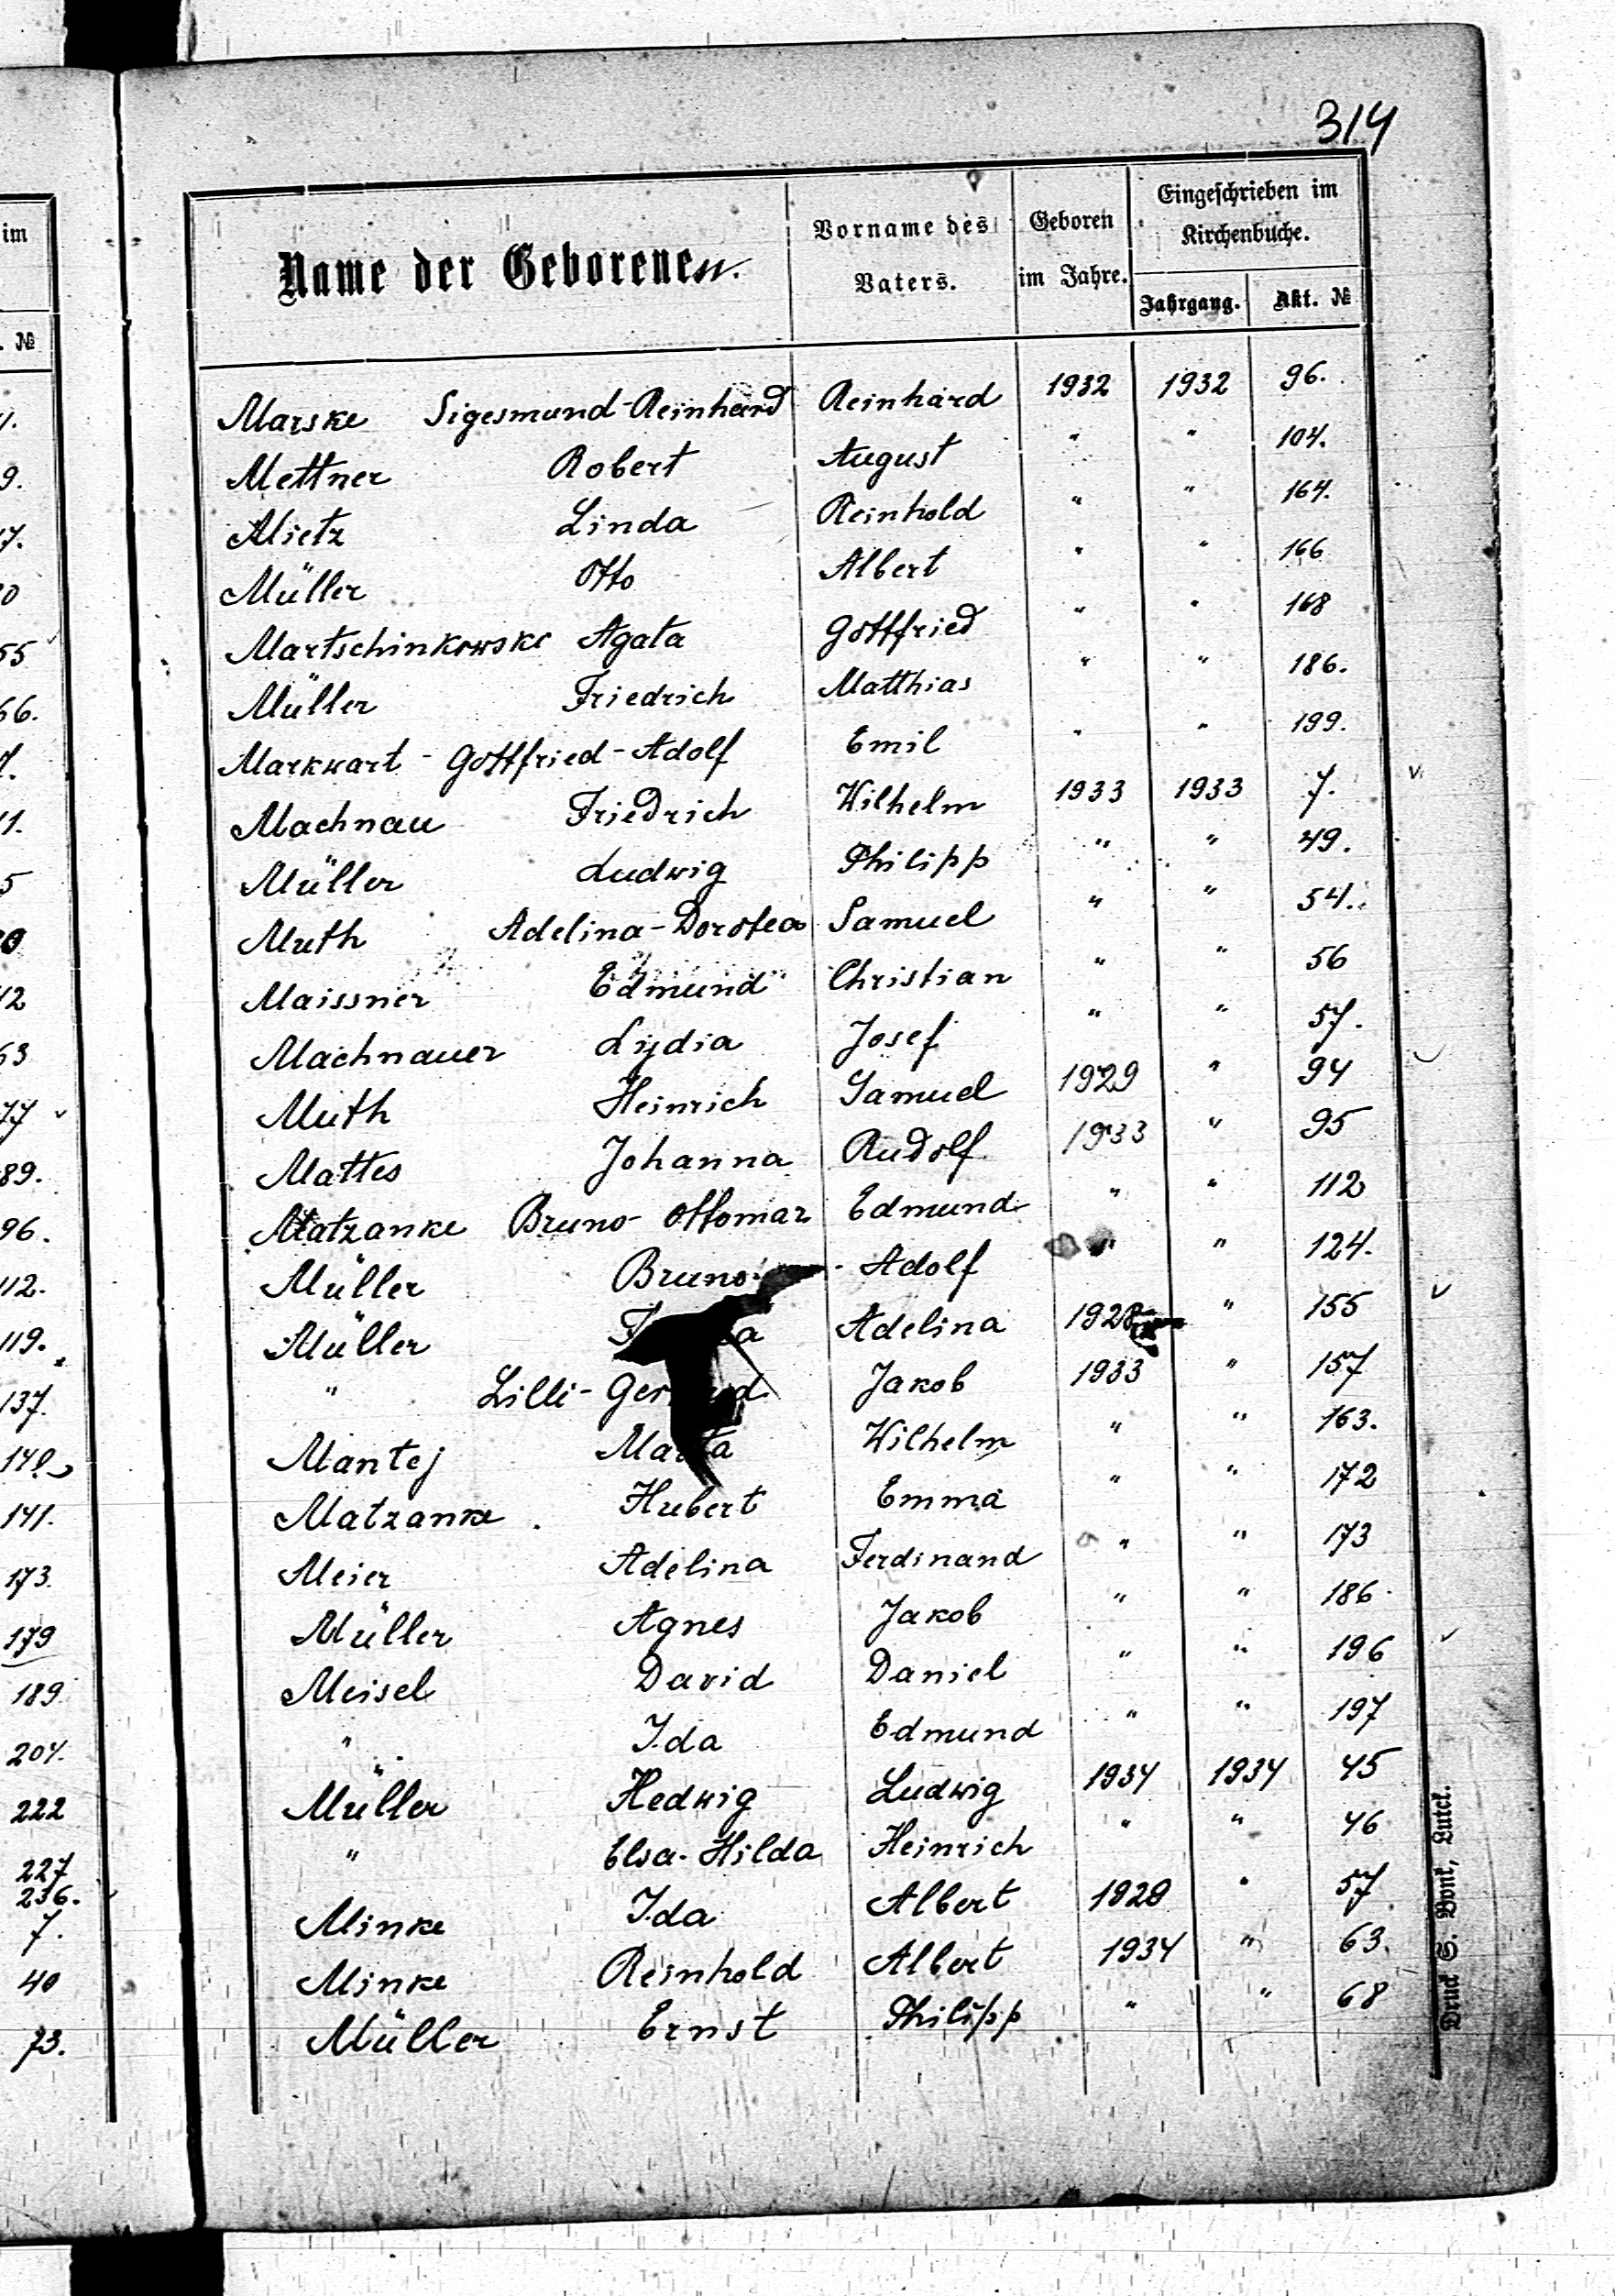 314
im
. №
Name der Geborenen.
Vorname des Vaters.
Geboren im Jahre.
Eingeschrieben im Kirchenbuche.
Jahrgang.
Akt. №
Marske Sigesmund-Reinhard Reinhard 1932 1932 96.
Mettner Robert August " " 104.
Mietz Linda Reinhold " " 164.
Müller Otto Albert " " 166
Martschinkowski Agata Gottfried " " 168
Müller Friedrich Matthias " " 186.
Markwart - Gottfried-Adolf Emil " " 199.
Machnau Friedrich Wilhelm 1933 1933 7.
Müller Ludwig Philipp " " 49.
Muth Adelina-Dorotea Samuel " " 54.
Maissner Edmund Christian " " 56
Machnauer Lydia Josef " " 57.
Muth Heinrich Samuel 1929 " 94
Mattes Johanna Rudolf 1933 " 95
Matzanke Bruno-Ottomar Edmund " " 112
Müller Bruno Adolf " " 124.
Müller Adelina 1928 " 155
" Lilli- Jakob 1933 " 157
Mantej Marta Wilhelm " " 163.
Matzanke Hubert Emma " " 172
Meier Adelina Ferdinand " " 173
Müller Agnes Jakob " " 186
Meisel David Daniel " " 196
" Ida Edmund " " 197
Müller Hedwig Ludwig 1934 1934 45
" Elsa-Hilda Heinrich " " 46
Minke Ida Albert 1928 " 57
Minke Reinhold Albert 1934 " 63.
Müller Ernst Philipp " " 68
55
66.
12
63
77
89.
96.
112.
119.
137.
140
141.
173.
179
189
204.
222
227
236.
7.
40
73.
Druck S. Bonk, Luck.